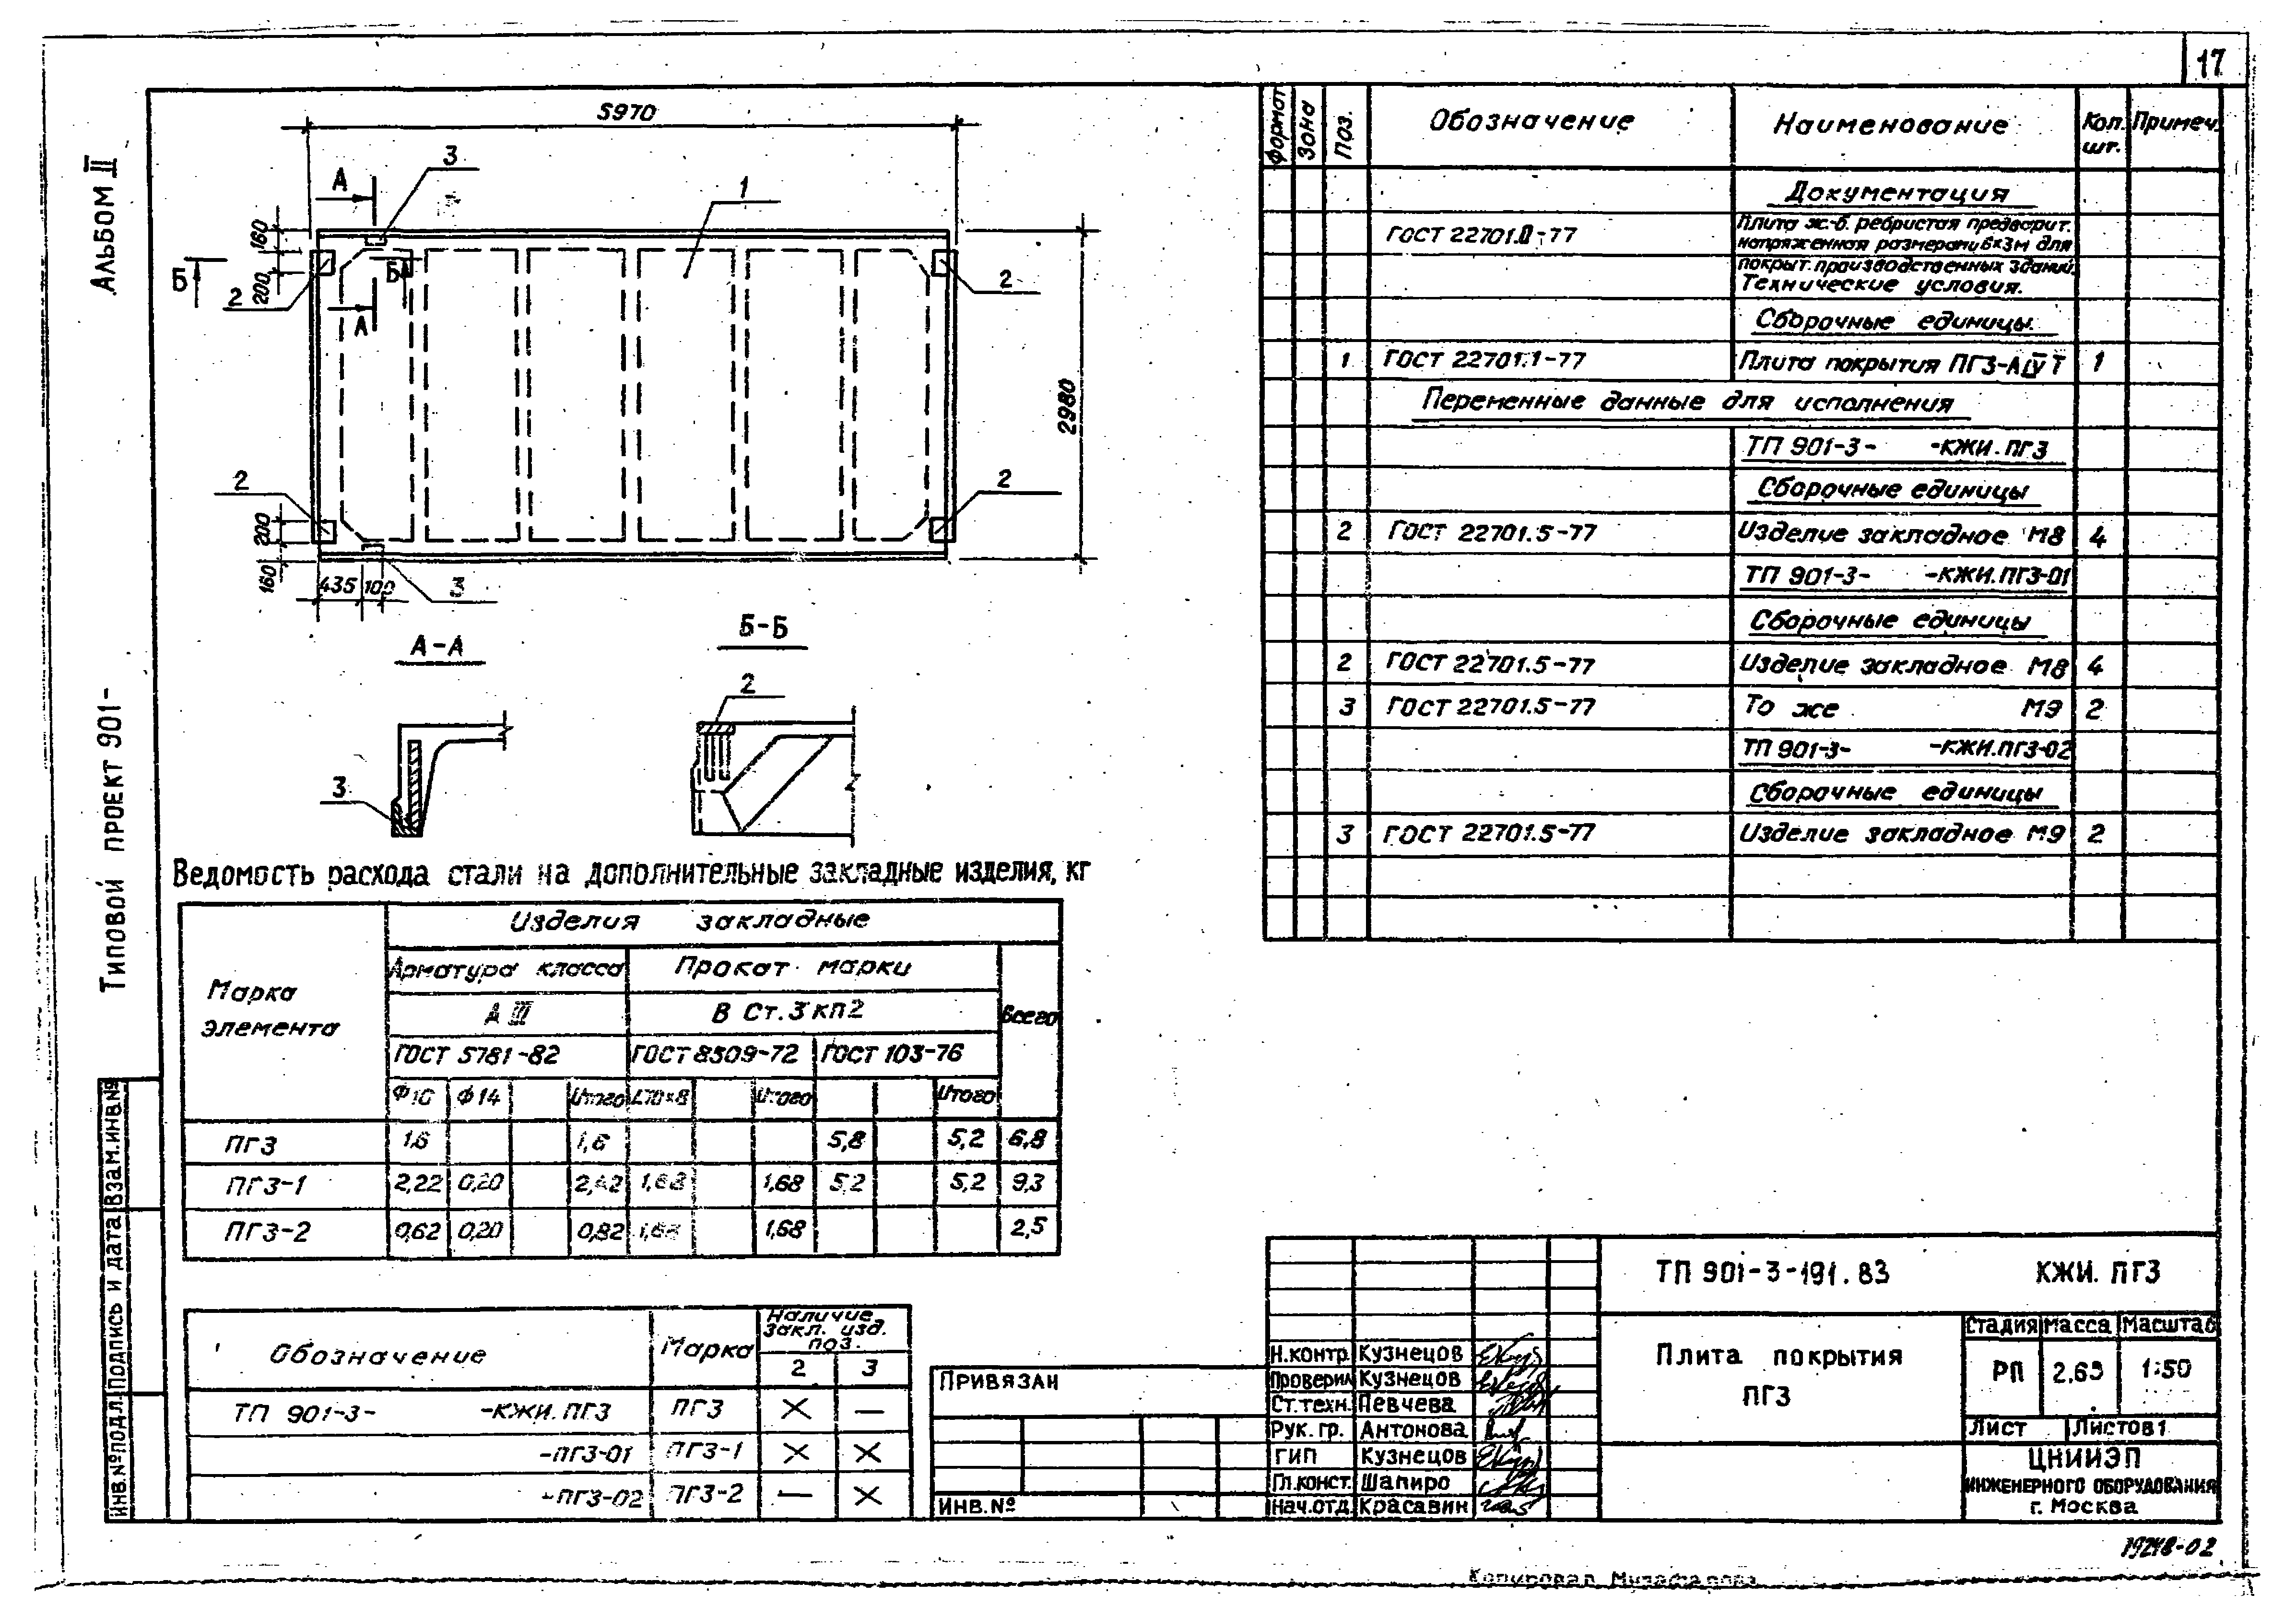 17
Альбом III
Типовой проект 901-
Инв.№ подл. Подпись и дата Взам.инв.№
5970
А
3
1
160
200
Б
2
Б
2
А
2
2
200
160
435
100
3
2980
А-А
3
Б-Б
2
Ведомость расхода стали на дополнительные закладные изделия, кг
Марка элемента
Изделия закладные
Арматура класса
Прокат марки
Всего
А III
В Ст.3 кп2
ГОСТ 5781-82 ГОСТ 8509-72 ГОСТ 103-76
Ф10 Ф14 Итого L70×8 Итого Итого
ПГ3 1,6 1,6 5,8 5,2 6,8
ПГ3-1 2,22 0,20 2,42 1,68 1,68 5,2 5,2 9,3
ПГ3-2 0,62 0,20 0,82 1,68 1,68 2,5
Обозначение Марка Наличие закл. изд. поз.
2 3
ТП 901-3- -КЖИ.ПГ3 ПГ3 × —
-ПГ3-01 ПГ3-1 × ×
-ПГ3-02 ПГ3-2 — ×
Формат Зона Поз. Обозначение Наименование Кол. шт. Примеч.
Документация
ГОСТ 22701.0-77 Плита ж-б. ребристая предварит.
напряженная размерами 6×3м для
покрыт. производственных зданий.
Технические условия.
Сборочные единицы.
1 ГОСТ 22701.1-77 Плита покрытия ПГ3-АIVТ 1
Переменные данные для исполнения
ТП 901-3- -КЖИ.ПГ3
Сборочные единицы
2 ГОСТ 22701.5-77 Изделие закладное М8 4
ТП 901-3- -КЖИ.ПГ3-01
Сборочные единицы
2 ГОСТ 22701.5-77 Изделие закладное М8 4
3 ГОСТ 22701.5-77 То же М9 2
ТП 901-3- -КЖИ.ПГ3-02
Сборочные единицы
3 ГОСТ 22701.5-77 Изделие закладное М9 2
Привязан
Инв.№
Н.контр. Кузнецов
Проверил Кузнецов
Ст.техн. Певчева
Рук.гр. Антонова
ГИП Кузнецов
Гл.конст. Шапиро
Нач.отд. Красавин
ТП 901-3-191.83 КЖИ. ПГ3
Плита покрытия
ПГ3
Стадия Масса Масштаб
РП 2,65 1:50
Лист Листов 1
ЦНИИЭП
инженерного оборудования
г. Москва
19248-02
Копировал